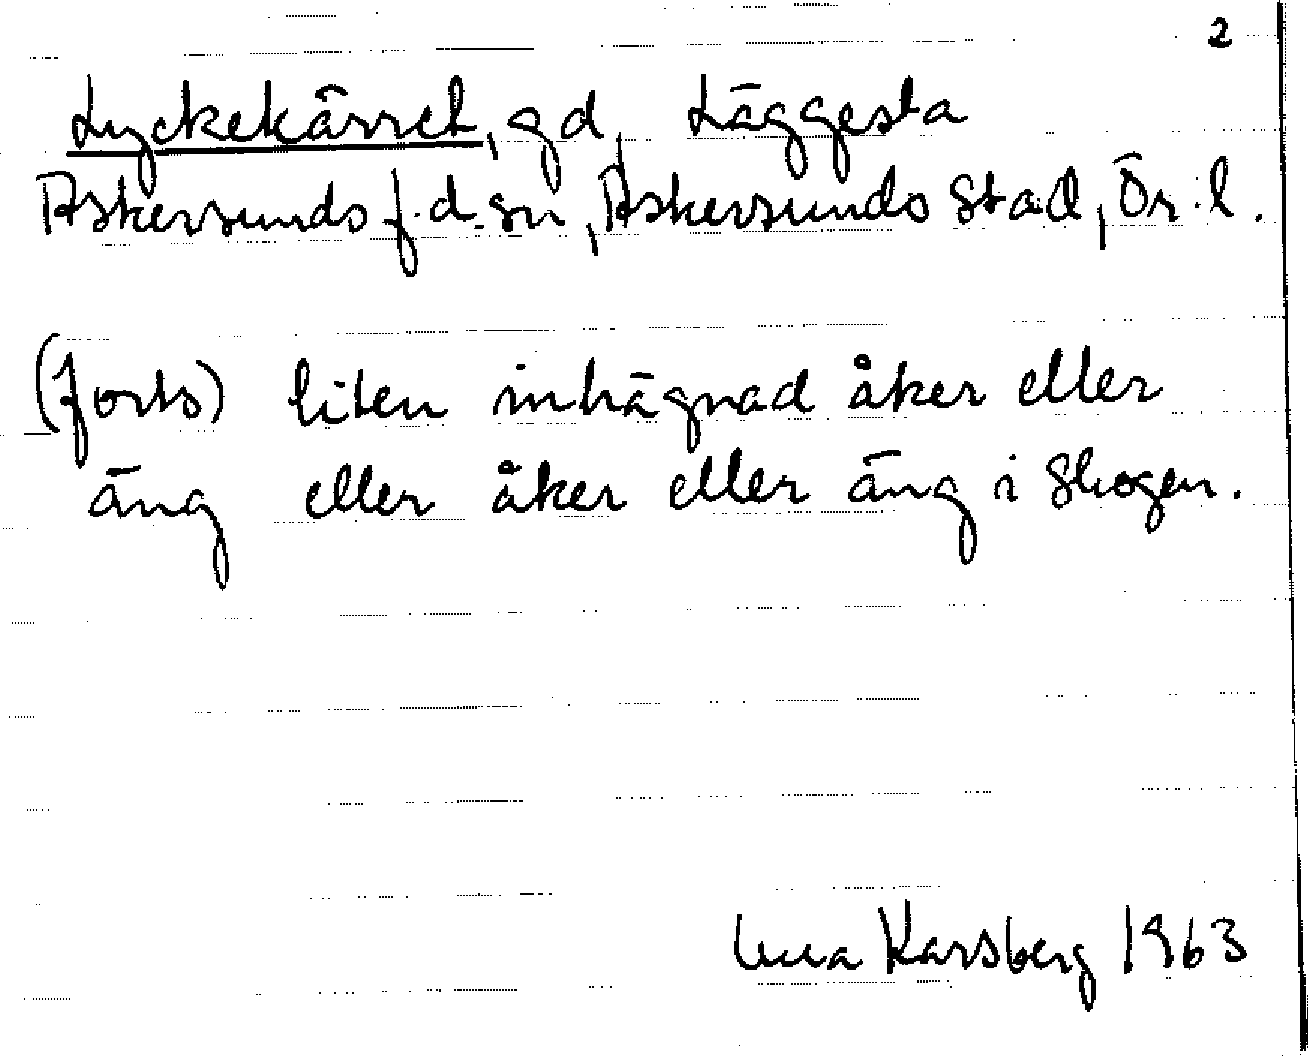 2
Lyckekärret, gd, Läggesta
Askersunds f.d. sn, Askersunds Stad, Ör. l.
(forts) liten inhägnad åker eller
äng eller åker eller äng i Skogen.
Karsberg 1963